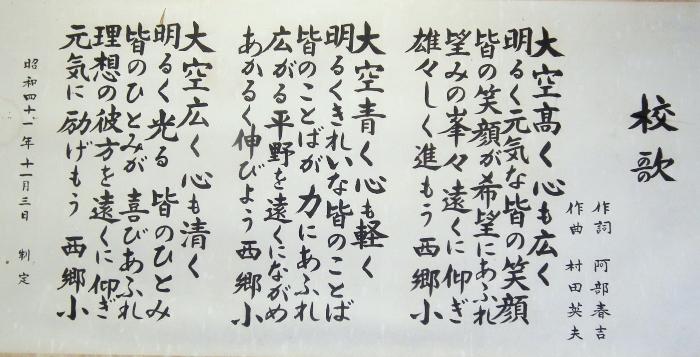 校歌
作詞 阿部春吉
作曲 村田英夫
大空高く心も広く
明るく元気な皆の笑顔
皆の笑顔が希望にあふれ
望みの峯々遠くに仰ぎ
雄々しく進もう 西郷小
大空青く心も軽く
明るくきれいな皆のことば
皆のことばが力にあふれ
広がる平野を遠くにながめ
あかるく伸びよう西郷小
大空広く心も清く
明るく光る 皆のひとみ
皆のひとみが 喜びあふれ
理想の彼方を遠くに仰ぎ
元気に励げもう 西郷小
昭和四十一年十一月三日 制定